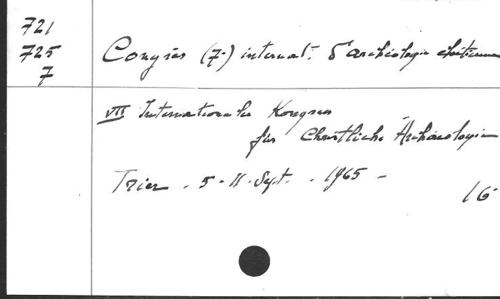 721
725
7
Congrès (7e) internat. d'archéologie chrétienne
VII Internationaler Kongress
für Christliche Archäologie
Trier - 5-11 Sept. - 1965 -
16